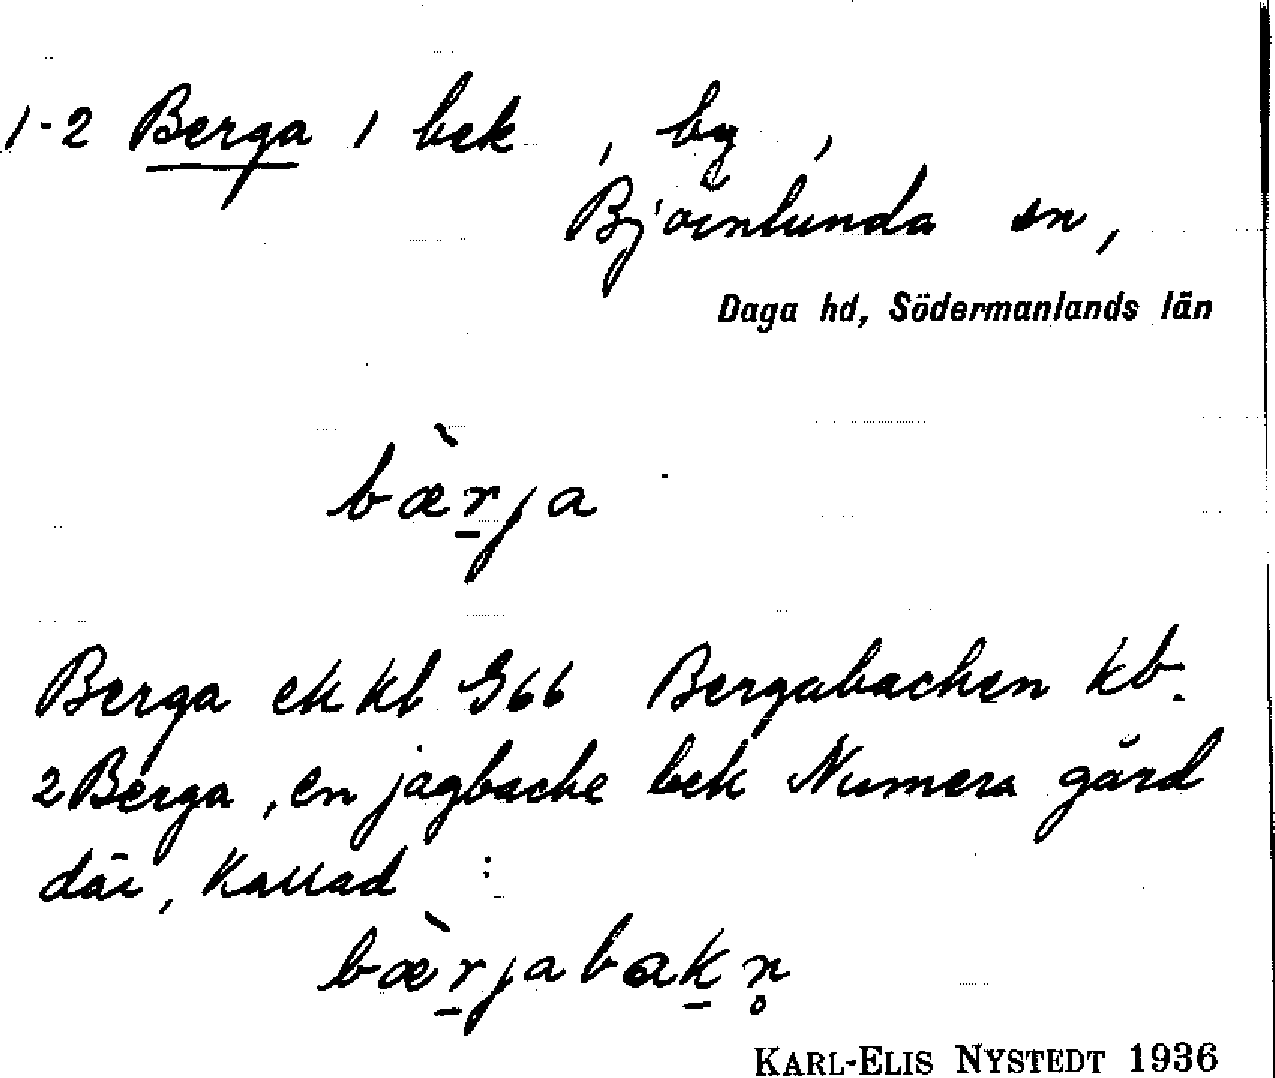 1-2 Berga 1 bek , by ,
Björnlunda sn,
Daga hd, Södermanlands län
bæ̀r̲ja
Berga ek kb G66 Bergabacken kb.
2 Berga, en jagbacke bek Numera gård
där, kallad :
bæ̀r̲jabak̲n̥
KARL-ELIS NYSTEDT 1936